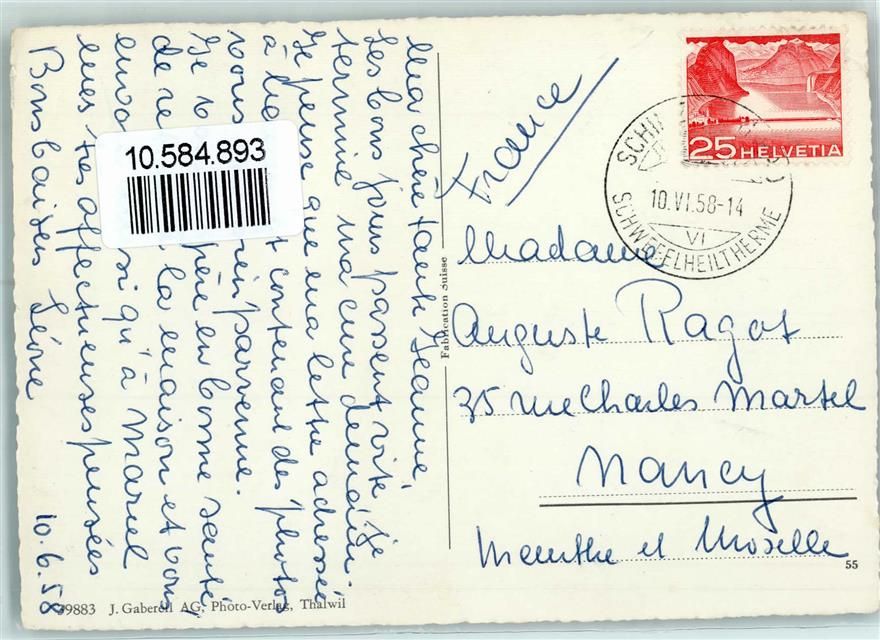 Ma chère tante Jeanne,
Les bons jours passent vite, je
termine ma cure demain.
Je pense que ma lettre adressée
à contenant des photos
vous parvenue.
Je père en bonne santé
de la maison et vous
envo si qu'à Marcel
mes très affectueuses pensées
Bons baisers Léone
10.6.58
France
Madame
Auguste Ragot
35 rue Charles Martel
Nancy
Meurthe et Moselle
25 HELVETIA
SCHI
10.VI.58-14
VI
SCHWEFELHEILTHERME
10.584.893
Fabrication Suisse
39883 J. Gaberell AG, Photo-Verlag, Thalwil
55